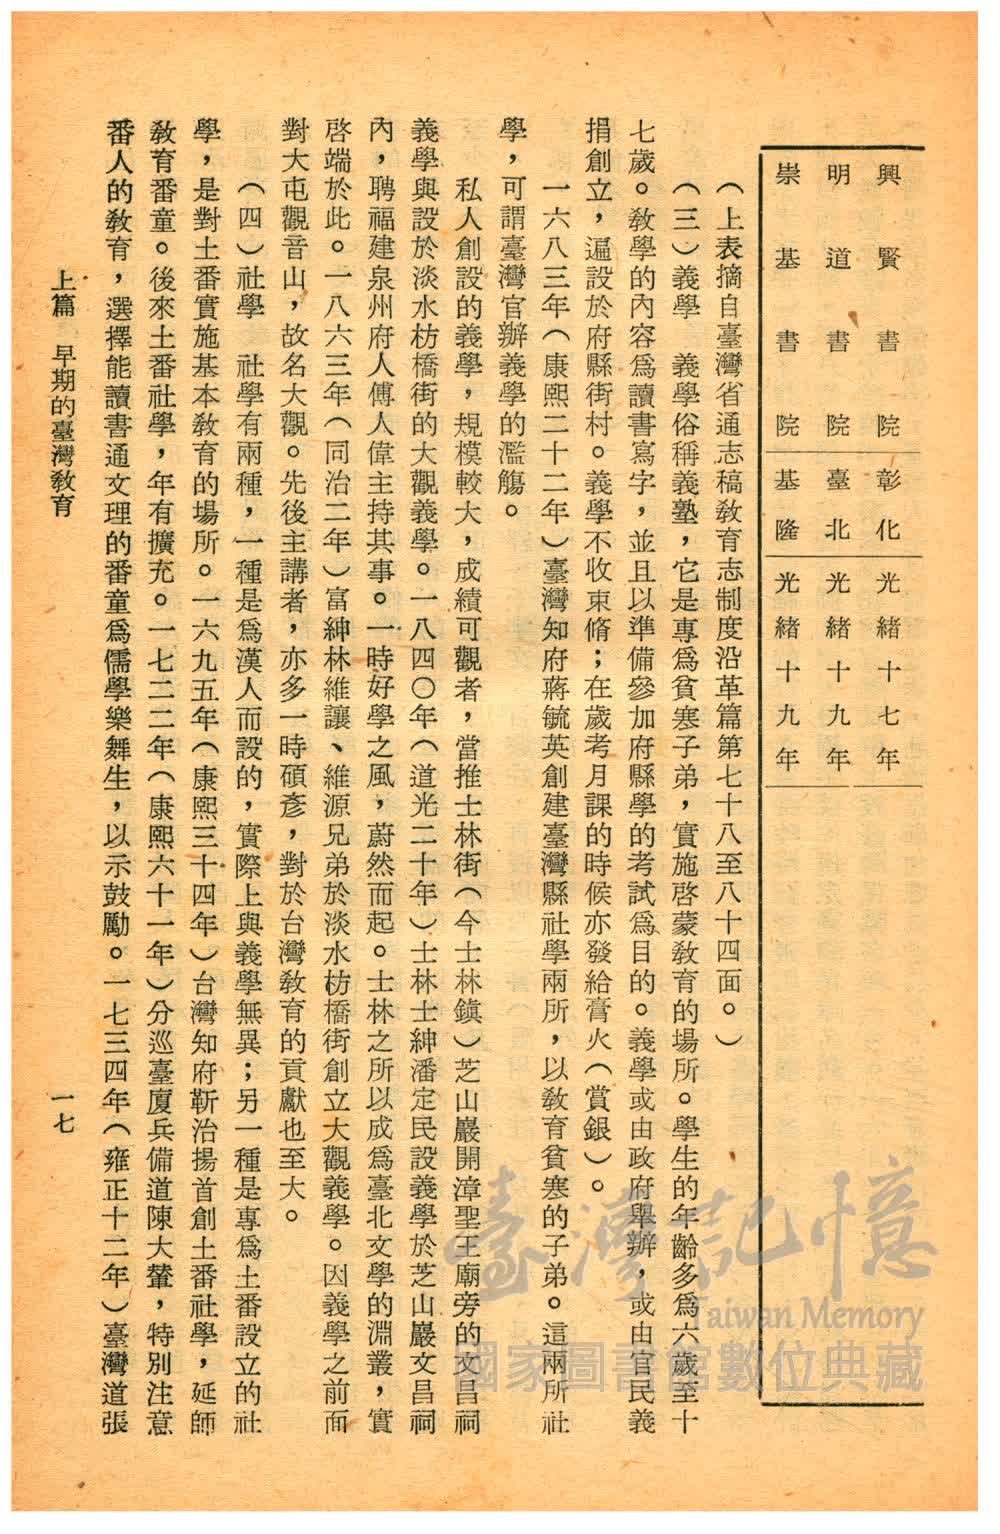 興賢書院 彰化 光緒十七年
明道書院 臺北 光緒十九年
崇基書院 基隆 光緒十九年
（上表摘自臺灣省通志稿敎育志制度沿革篇第七十八至八十四面。）
（三）義學　義學俗稱義塾，它是專爲貧寒子弟，實施啓蒙敎育的場所。學生的年齡多爲六歲至十
七歲。敎學的內容爲讀書寫字，並且以準備參加府縣學的考試爲目的。義學或由政府舉辦，或由官民義
捐創立，遍設於府縣街村。義學不收束脩；在歲考月課的時候亦發給膏火（賞銀）。
一六八三年（康熙二十二年）臺灣知府蔣毓英創建臺灣縣社學兩所，以敎育貧寒的子弟。這兩所社
學，可謂臺灣官辦義學的濫觴。
私人創設的義學，規模較大，成績可觀者，當推士林街（今士林鎭）芝山巖開漳聖王廟旁的文昌祠
義學與設於淡水枋橋街的大觀義學。一八四〇年（道光二十年）士林士紳潘定民設義學於芝山巖文昌祠
內，聘福建泉州府人傅人偉主持其事。一時好學之風，蔚然而起。士林之所以成爲臺北文學的淵叢，實
啓端於此。一八六三年（同治二年）富紳林維讓、維源兄弟於淡水枋橋街創立大觀義學。因義學之前面
對大屯觀音山，故名大觀。先後主講者，亦多一時碩彥，對於台灣敎育的貢獻也至大。
（四）社學　社學有兩種，一種是爲漢人而設的，實際上與義學無異；另一種是專爲土番設立的社
學，是對土番實施基本敎育的場所。一六九五年（康熙三十四年）台灣知府靳治揚首創土番社學，延師
敎育番童。後來土番社學，年有擴充。一七二二年（康熙六十一年）分巡臺廈兵備道陳大輦，特別注意
番人的敎育，選擇能讀書通文理的番童爲儒學樂舞生，以示鼓勵。一七三四年（雍正十二年）臺灣道張
上篇　早期的臺灣敎育
一七
臺灣記憶
Taiwan Memory
國家圖書館數位典藏